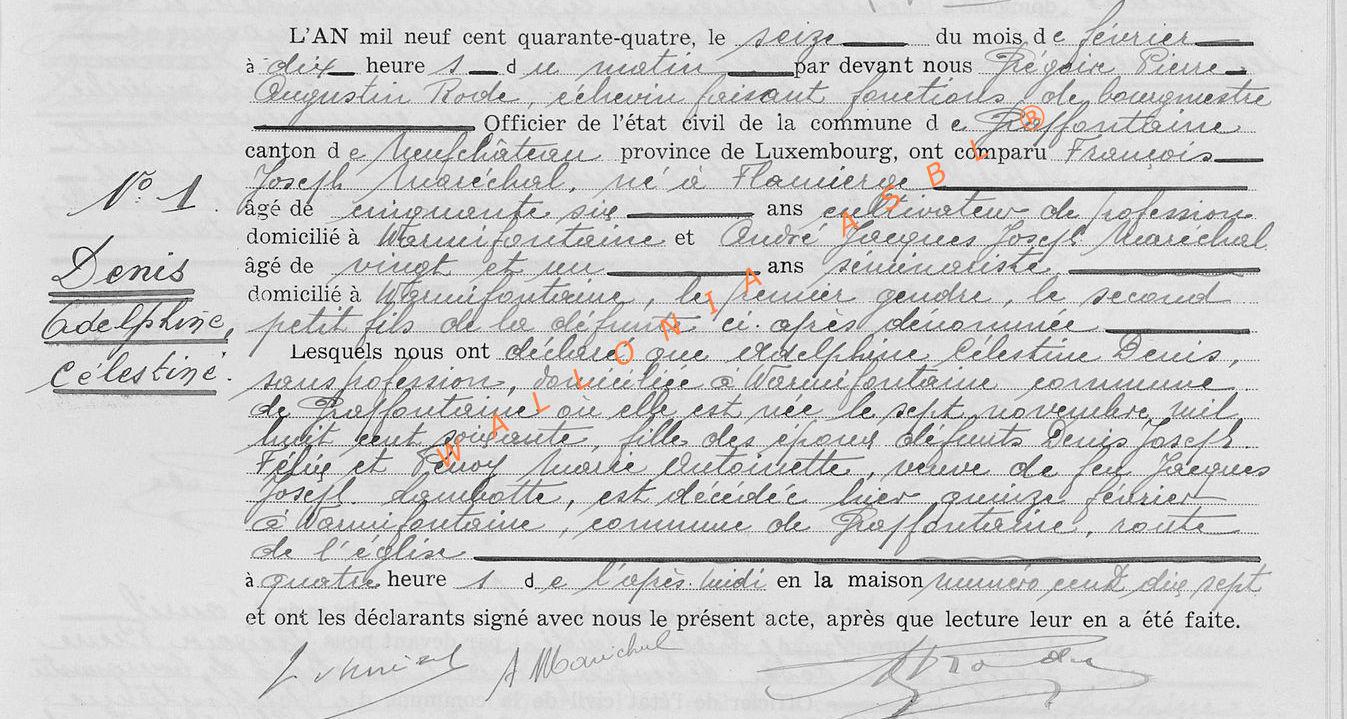 L'AN mil neuf cent quarante-quatre, le seize du mois de février
à dix heures du matin par devant nous Grégoire Pierre
Augustin Rode, échevin faisant fonctions de bourgmestre
Officier de l'état civil de la commune de Graffontaine
canton de Neufchâteau province de Luxembourg, ont comparu François
Joseph Maréchal, né à Flamierge
N° 1.
âgé de cinquante six ans cultivateur de profession
domicilié à Warmifontaine et André Jacques Joseph Maréchal
Denis
âgé de vingt et un ans séminariste
domicilié à Warmifontaine, le premier gendre, le second
Adelphine,
petit fils de la défunte ci-après dénommée
Lesquels nous ont déclaré que Adelphine Célestine Denis,
Célestine.
sans profession, domiciliée à Warmifontaine commune
de Graffontaine où elle est née le sept novembre mil
huit cent soixante, fille des époux défunts Denis Joseph
Félix et Marie Antoinette, veuve de feu Jacques
Joseph Lambotte, est décédée hier quinze février
à Warmifontaine, commune de Graffontaine, route
de l'église
à quatre heures de l'après-midi en la maison numéro cent dix sept
et ont les déclarants signé avec nous le présent acte, après que lecture leur en a été faite.
A Maréchal
WALLONIA ASBL ®